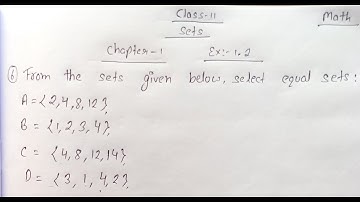 Class-11 Math
Sets
Chapter-1 Ex:-1.2
⑥ From the sets given below, select equal sets:
A = {2,4,8,12},
B = {1,2,3,4},
C = {4,8,12,14}
D = {3, 1, 4, 2}